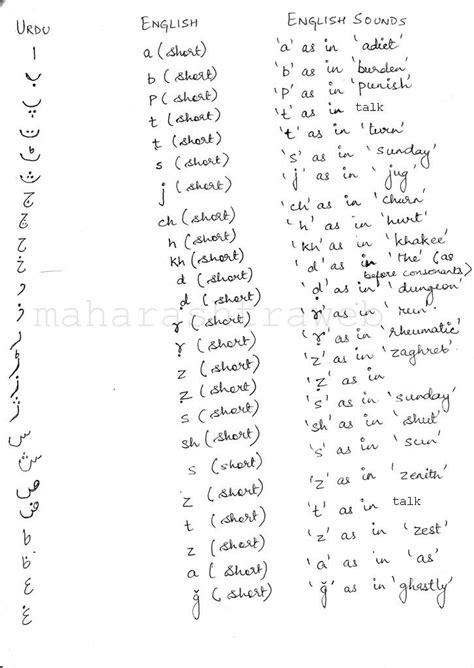 URDU ENGLISH ENGLISH SOUNDS
ا a (short) 'a' as in 'adiet'
ب b (short) 'b' as in 'burden'
پ p (short) 'p' as in 'punish'
ت t (short) 't' as in talk
ٹ t (short) 't' as in 'turn'
ث s (short) 's' as in 'sunday'
ج j (short) 'j' as in 'jug'
چ ch (short) 'ch' as in 'churn'
ح h (short) 'h' as in 'hurt'
خ kh (short) 'kh' as in 'khakee'
د d (short) 'd' as in 'the' (as before consonants)
d (short) 'd' as in 'dungeon'
ر r (short) 'r' as in 'run'
ڑ ṛ (short) 'ṛ' as in 'rheumatic'
ز z (short) 'z' as in 'zaghreb'
ژ z (short) 'z' as in
س s (short) 's' as in 'sunday'
ش sh (short) 'sh' as in 'shut'
ص s (short) 's' as in 'sun'
ض z (short) 'z' as in 'zenith'
ط t (short) 't' as in talk
ظ z (short) 'z' as in 'zest'
ع a (short) 'a' as in 'as'
غ ğ (short) 'ğ' as in 'ghastly'
maharashtraweb